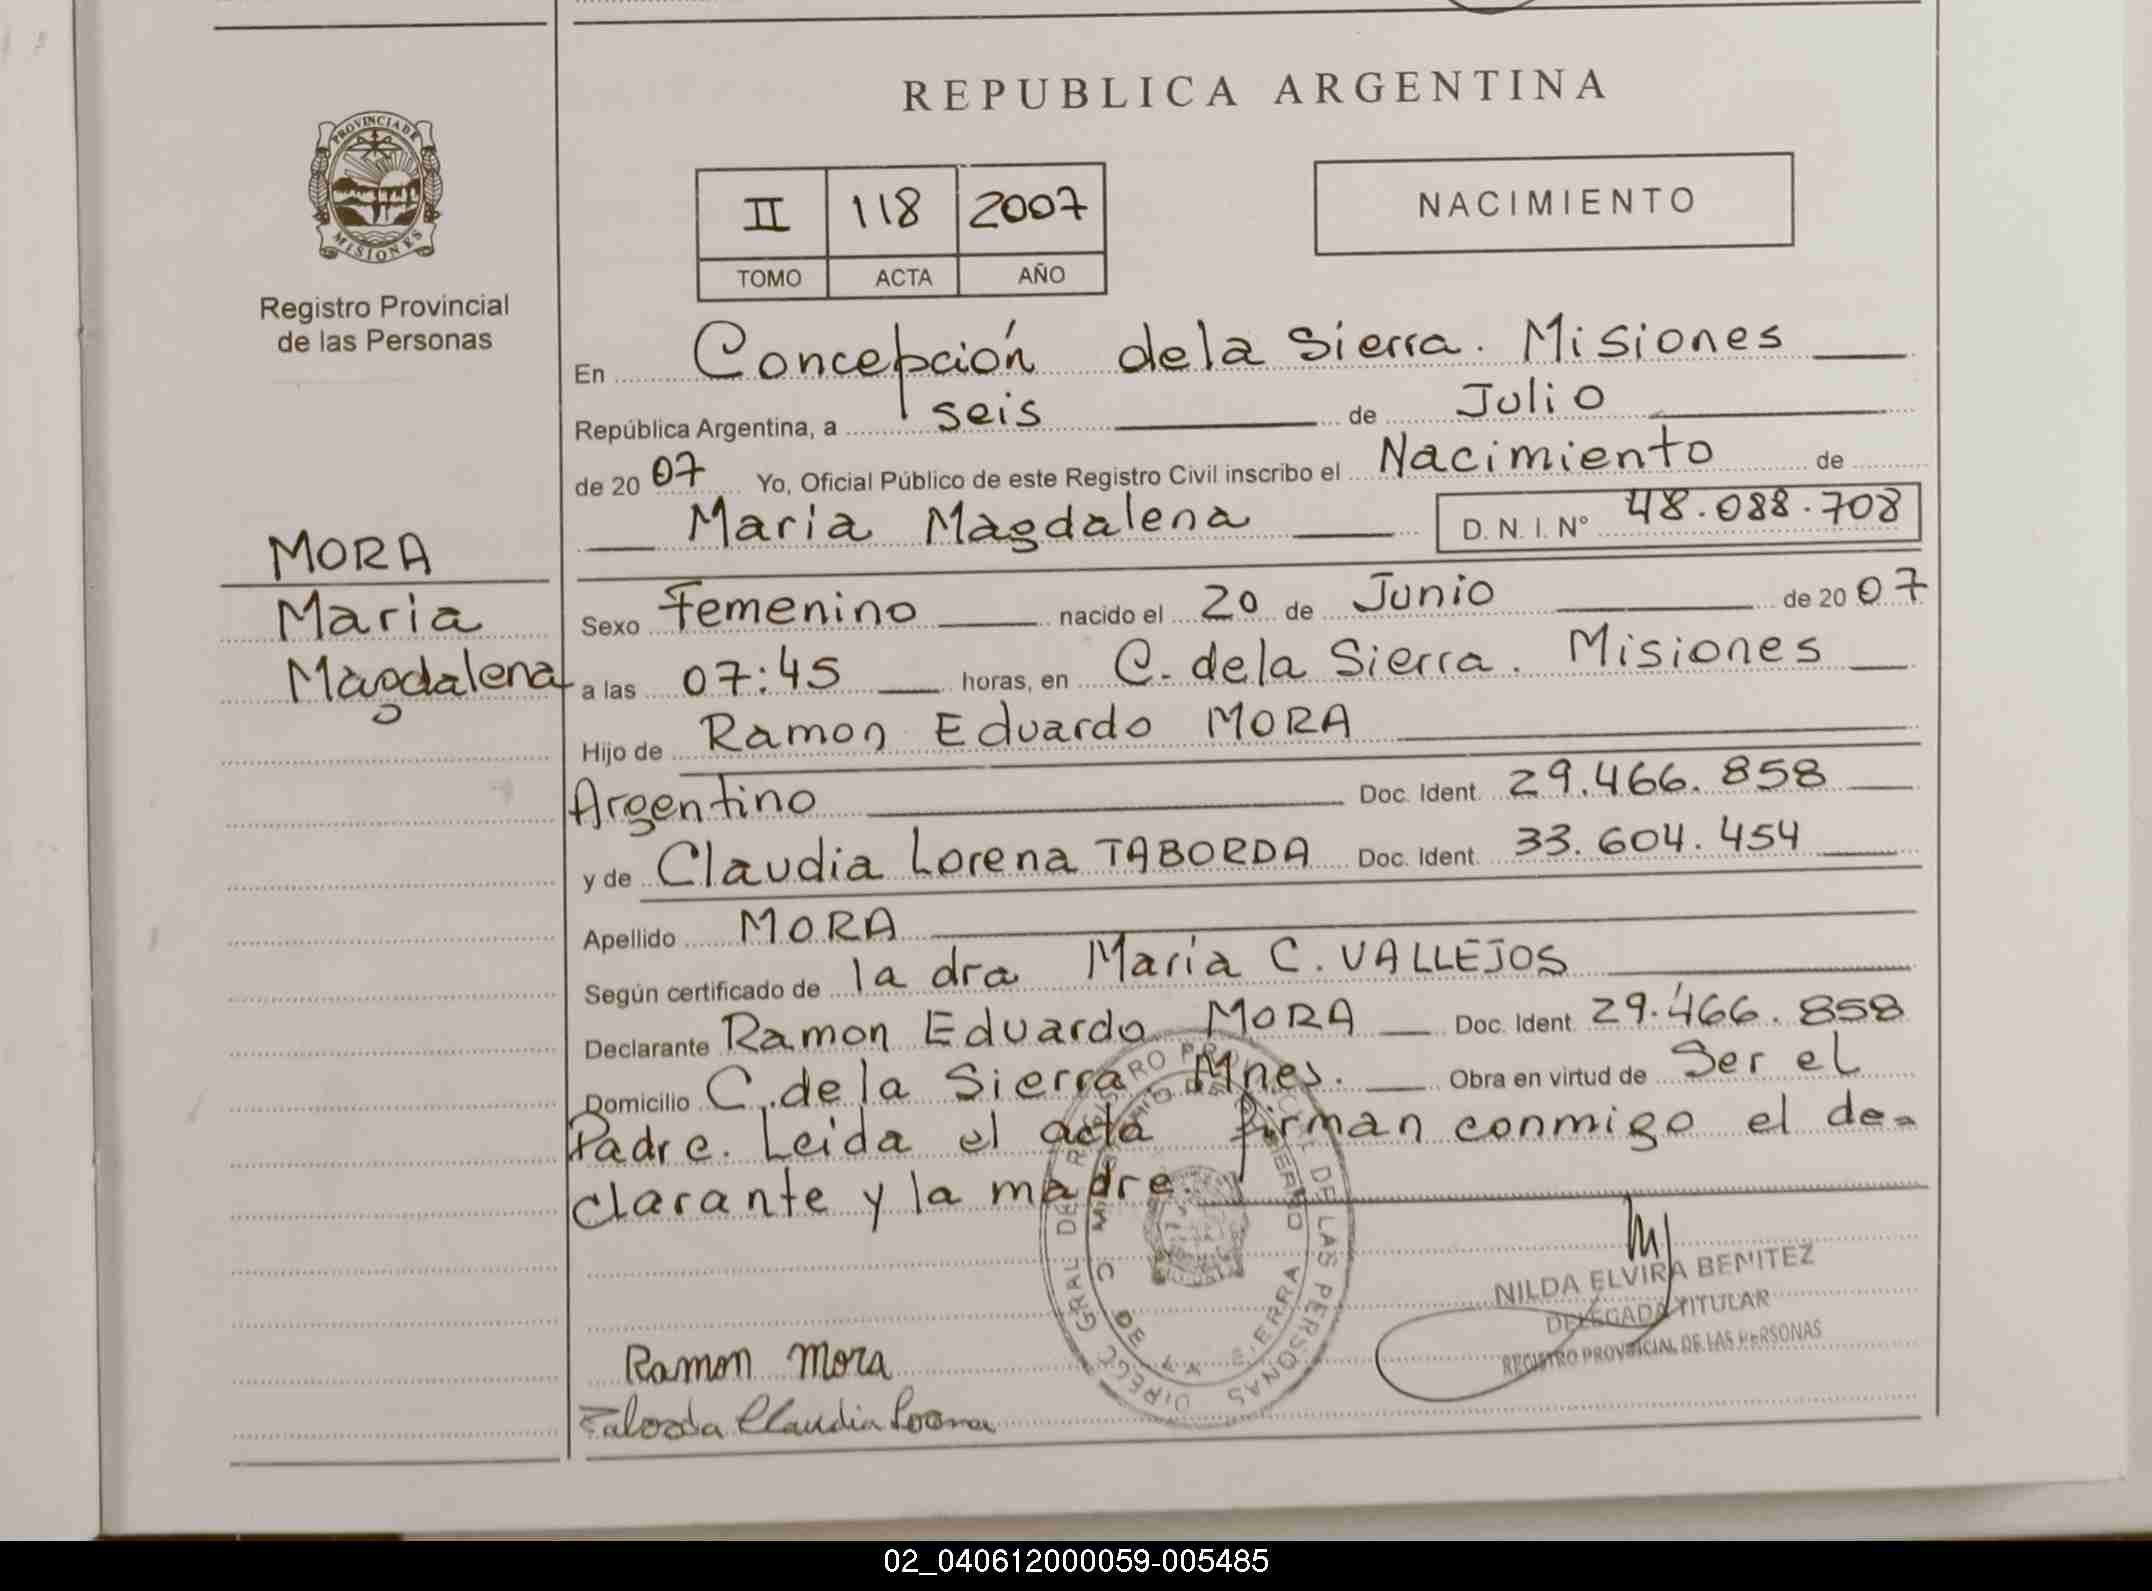 REPUBLICA ARGENTINA
PROVINCIA DE
MISIONES
Registro Provincial
de las Personas
II 118 2007
TOMO ACTA AÑO
NACIMIENTO
En Concepción de la Sierra. Misiones
República Argentina, a seis de Julio
de 2007 Yo, Oficial Público de este Registro Civil inscribo el Nacimiento de
Maria Magdalena D. N. I. Nº 48.088.708
MORA
Maria
Magdalena
Sexo Femenino nacido el 20 de Junio de 2007
a las 07:45 horas, en C. de la Sierra. Misiones
Hijo de Ramon Eduardo MORA
Argentino Doc. Ident. 29.466.858
y de Claudia Lorena TABORDA Doc. Ident. 33.604.454
Apellido MORA
Según certificado de la dra María C. VALLEJOS
Declarante Ramon Eduardo MORA Doc. Ident. 29.466.858
Domicilio C. de la Sierra. Mnes. Obra en virtud de Ser el
Padre. Leida el acta firman conmigo el de-
clarante y la madre.
DIRECC GRAL DEL REGISTRO PROVINCIAL DE LAS PERSONAS
C DE LA SIERRA
NILDA ELVIRA BENITEZ
DELEGADA TITULAR
REGISTRO PROVINCIAL DE LAS PERSONAS
Ramon Mora
Taborda Claudia Lorena
02_040612000059-005485